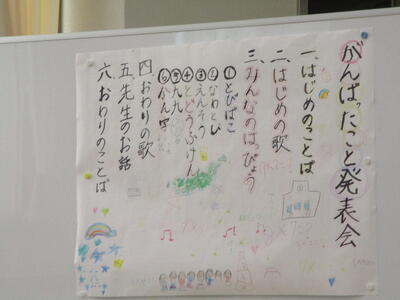 がんばったこと発表会
一、はじめのことば
二、はじめの歌
三、みんなのはっぴょう
①とびばこ
②なわとび
③えんそう
④とどうふけん
⑤九九
⑥かん字
四、おわりの歌
五、先生のお話
六、おわりのことば